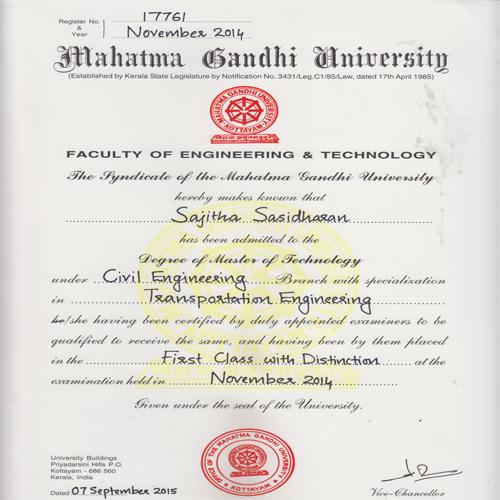 Register No. & Year 17761
November 2014
Mahatma Gandhi University
(Established by Kerala State Legislature by Notification No. 3431/Leg.C1/85/Law, dated 17th April 1985)
MAHATMA GANDHI UNIVERSITY
KOTTAYAM
FACULTY OF ENGINEERING & TECHNOLOGY
The Syndicate of the Mahatma Gandhi University
hereby makes known that
Sajitha Sasidharan
has been admitted to the
Degree of Master of Technology
under Civil Engineering Branch with specialization
in Transportation Engineering
he/she having been certified by duly appointed examiners to be
qualified to receive the same, and having been by them placed
in the First Class with Distinction at the
examination held in November 2014
Given under the seal of the University.
OFFICE OF THE MAHATMA GANDHI UNIVERSITY
KOTTAYAM
University Buildings
Priyadarsini Hills P.O.
Kottayam - 686 560
Kerala, India
Dated 07 September 2015
Vice-Chancellor